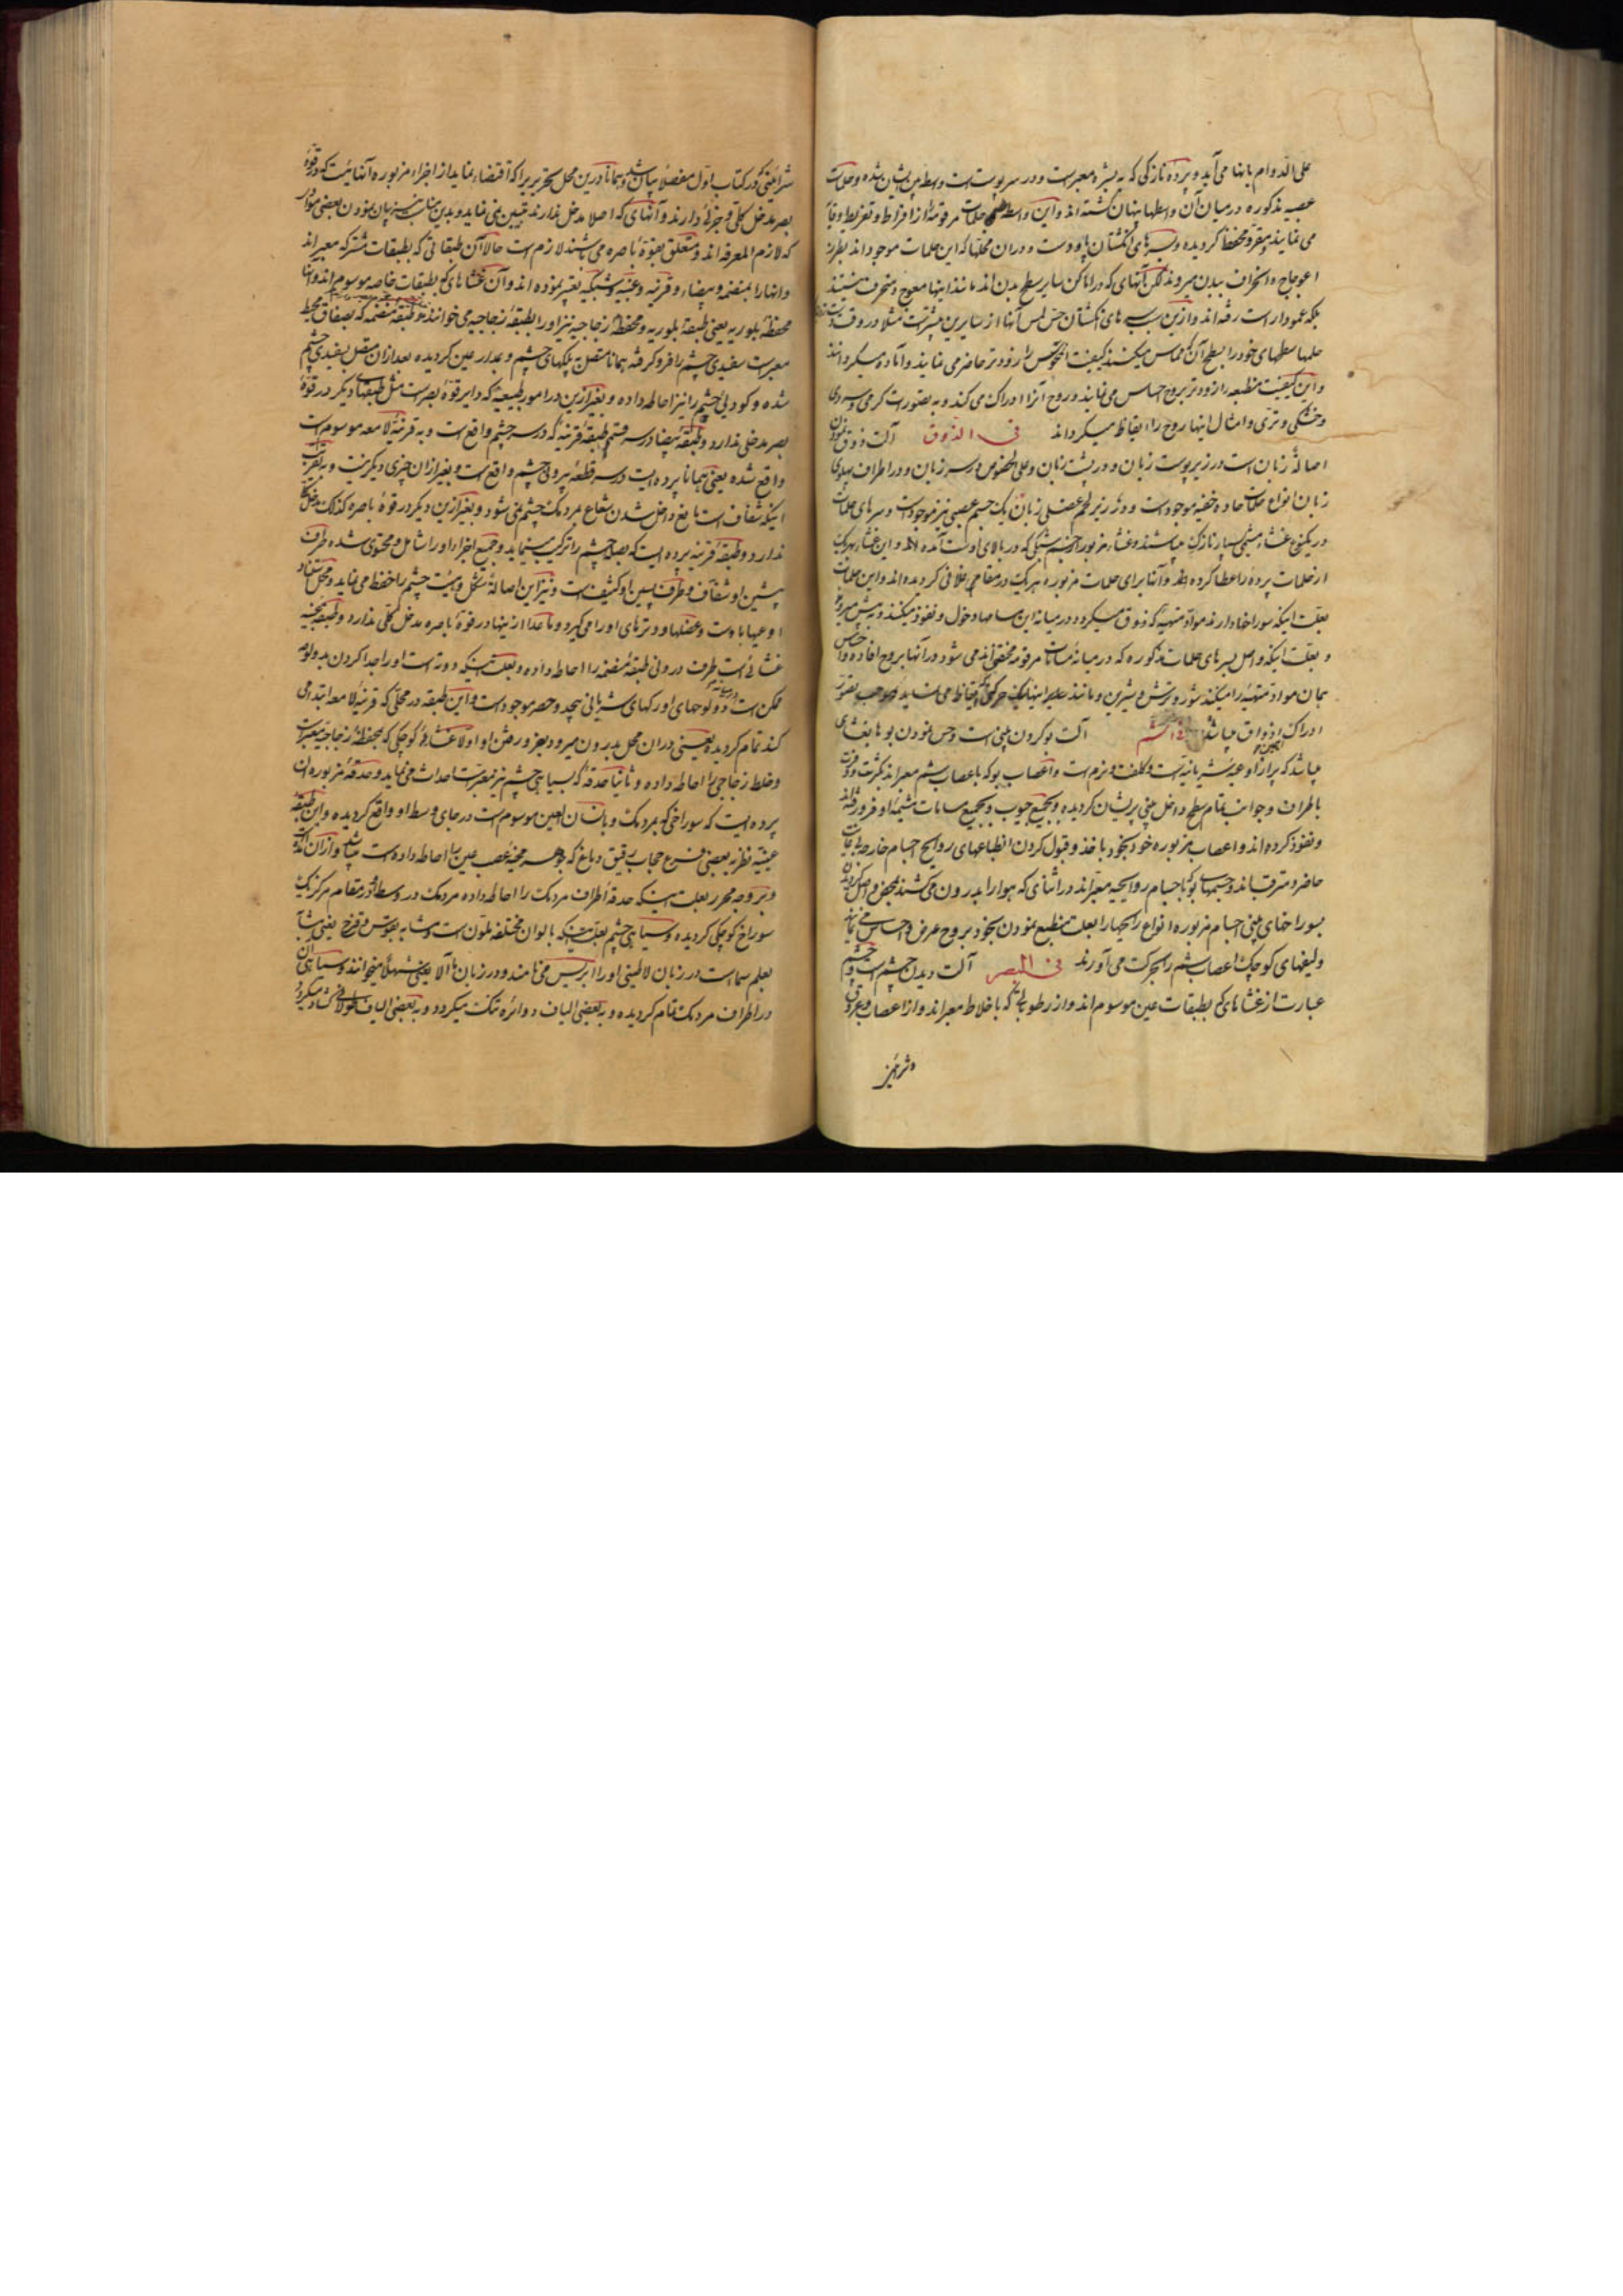 علی الدوام بانها می آید و پردهٔ نازکی که به بشره معبرست و در سر پوست است واسطه پریشان شده و حلمات
عصبیه مذکوره در میان آن واسطها پنهان گشته اند و این واسطه حلمات مرقومه را از افراط و تفریط وقایه
می نمایند و مقر و محفظ گردیده و سرهای انگشتان پا و دست و در آن محلها که این حلمات موجود اند بطرز
اعوجاج و انحراف ببدن میروند لکن آنهای که در اماکن سایر سطح بدن اند مانند اینها معوج و منحرف نیستند
بلکه عمودوار است رفته اند و ازین سبب سرهای انگشتان حس لمس آنها از سایرین بیشترست مثلا در وقت
حلمها سطحهای خود را بسطح آن که مماس میکنند کیفیت را زودتر حاضر می نمایند و آماده میگردانند
و این کیفیت منطبعه را زودتر بروح حساس می نمایند و روح آنرا ادراک می کند و به صورت گرمی و سردی
و خشکی و تری و امثال اینها روح را ایقاظ میگرداند فی الذوق آلت ذوق نمودن
اصالة زبان است در زیر پوست زبان و در پشت زبان و علی الخصوص در سر زبان و در اطراف پهلوی
زبان انواع حلمات حاده خفیه موجودست و در زیر لحم عضلی زبان یک جسم عصبی نیز موجودست و سرهای حلمات
در یکنوع غشاء مشیمی بسیار نازک میباشند و غشاء مزبور از جنس شبکی که در بالای اوست آمده اند و این غشاء بهر یک
از حلمات پرده را عطا کرده اند و آنها برای حلمات مزبوره هر یک در مقام غلافی گردیده اند و این حلمات
بعلت اینکه سوراخها دارند مواد متهیه که ذوق میگردد در میانه این مسامها دخول و نفوذ میکنند و به پیش میروند
و بعلت اینکه واصل بسرهای حلمات مذکوره که در میانهٔ مسامات مرقومه مختفی اند می شود در آنها بروح افاده و احساس
همان مواد متهیه را میکند شور و ترش و شیرین و مانند اینها
ادراک اذواق میباشد فی الشم آلت بو کردن بینی است و حس نمودن بوها بغشای
میباشد که پر از اوعیه شریانیه است و کلفت و نرم است و اعصاب بو که باعصاب شم معبراند بکثرت و وفرت
باطراف و جوانب تمام سطح داخل بینی پریشان گردیده و بجمیع جیوب و بجمیع مسامات مشیمهٔ او فرو رفته اند
و نفوذ کرده اند و اعصاب مزبوره خود بخود باخذ و قبول کردن انطباعهای روایح اجسام خارجه
حاضر و مترقب اند و جسمهای که با جسام روایحیه معبراند در اثنای که هوا را بدرون می کشند بمحض واصل گردیدن
بسوراخهای بینی اجسام مزبوره انواع رایحها را بعلت منطبع نمودن بخود بروح عرض و احساس می نمایند
و لیفهای کوچک اعصاب شم را بحرکت می آورند فی البصر آلت دیدن چشم است و چشم
عبارت از غشاهای که بطبقات عین موسوم اند و از رطوبات که باخلاط معبراند و از اعصاب و عروق
و شرائین
شرائینی که در کتاب اول مفصلا بیان شد و همانا درین محل تحریر یرا که اقتضاء نماید از اجزاء مزبوره آنهائیست که در قوهٔ
بصر مدخل کلی و جزئی دارند و آنهای که اصلا مدخل ندارند تبیین نمی نماید و بدین مناسبت بیان نمودن بعضی مواد
که لازم المعرفه اند و متعلق بقوهٔ باصره می باشند لازم است حالا آن طبقاتی که بطبقات مشترکه معبراند
و آنها را بمنضمه و بیضاء و قرنیه و عنبیه و شبکیه تعبیر نموده اند و آن غشاهای که بطبقات خاصه موسوم اند و آنها
محفظهٔ بلوریه یعنی طبقهٔ بلوریه و محفظهٔ زجاجیه نیز او را بطبقهٔ زجاجیه می خوانند و طبقهٔ منضمه که بصفاق محیط
معبرست سفیدی چشم را فرو گرفته همانا متصل به پلکهای چشم و بمدار عین گردیده بعد از آن متصل بسفیدی چشم
شده و کودلی چشم را نیز احاطه داده و بغیر ازین در امور طبیعیه که دایر قوهٔ بصرست مثل طبقهای دیگر در قوهٔ
بصر مدخل ندارد و طبقهٔ بیضا در سر قسم طبقهٔ قرنیه که در سر چشم واقع است و به قرنیهٔ لامعه موسوم است
واقع شده یعنی همانا پرده ایست در سر قطعهٔ بیرونی چشم واقع است و بغیر از آن چیزی دیگر نیست و به تقریب
اینکه شفاف است مانع داخل شدن شعاع بمردمک چشم نمی شود و بغیر ازین دیگر در قوهٔ باصره کذلک مدخل
ندارد و طبقهٔ قرنیه پرده ایست که بصل چشم را ترکیب مینماید و جمیع اجزاء او را شامل و محتوی شده طرف
پیشین او شفاف و طرف پسین او کثیف است و نیز این اصالة شکل و هیئت چشم را حفظ می نماید و محل استناد
اوعیها باوست و عضلها و وترهای او را می گیرد و ماعدا از ینها در قوهٔ باصره مدخل کلی ندارد و طبقهٔ عنبیه
غشائی است طرف درونی طبقهٔ منضمه را احاطه داده و بعلت اینکه دوته است او را جدا کردن بدو لوحه
ممکن است و در میانه دو لوحهای او رگهای شریانی بیحد و حصر موجود است و این طبقه در محلی که قرنیهٔ لامعه ابتدا می
کند تمام گردیده یعنی در آن محل بدرون میرود بعد در رفتن او اولا غشاء کوچکی که بمحفظهٔ زجاجیه معبرست
و خلط زجاجی را احاطه داده و ثانیا حدقه که بسیاهی چشم نیز معبرست احداث می نماید و حدقهٔ مزبوره آن
پرده ایست که سوراخی که بمردمک و بانسان العین موسوم است در جای وسط او واقع گردیده و این طبقهٔ
عنبیه نظر به بعضی فرع حجاب رقیق دماغ که جوهر مخیه عصب عین را احاطه داده است میباشد و از آن آمده
و بر وجه محرر بعلت اینکه حدقه اطراف مردمک را احاطه داده مردمک در وسط او در مقام مرکز یک
سوراخ کوچکی گردیده و سیاهی چشم بعلت اینکه بالوان مختلفه ملون است و مشابه بقوس و قزح یعنی مشابه
بعلم سماست در زبان لاطینی او را ایریس می نامند و در زبان ما آلا یعنی شهلا میخوانند و سیاهی آن
در اطراف مردمک تمام گردیده و به بعضی الیاف دوائره تنک میگردد و به بعضی الیاف طولانی گشاد میگردد